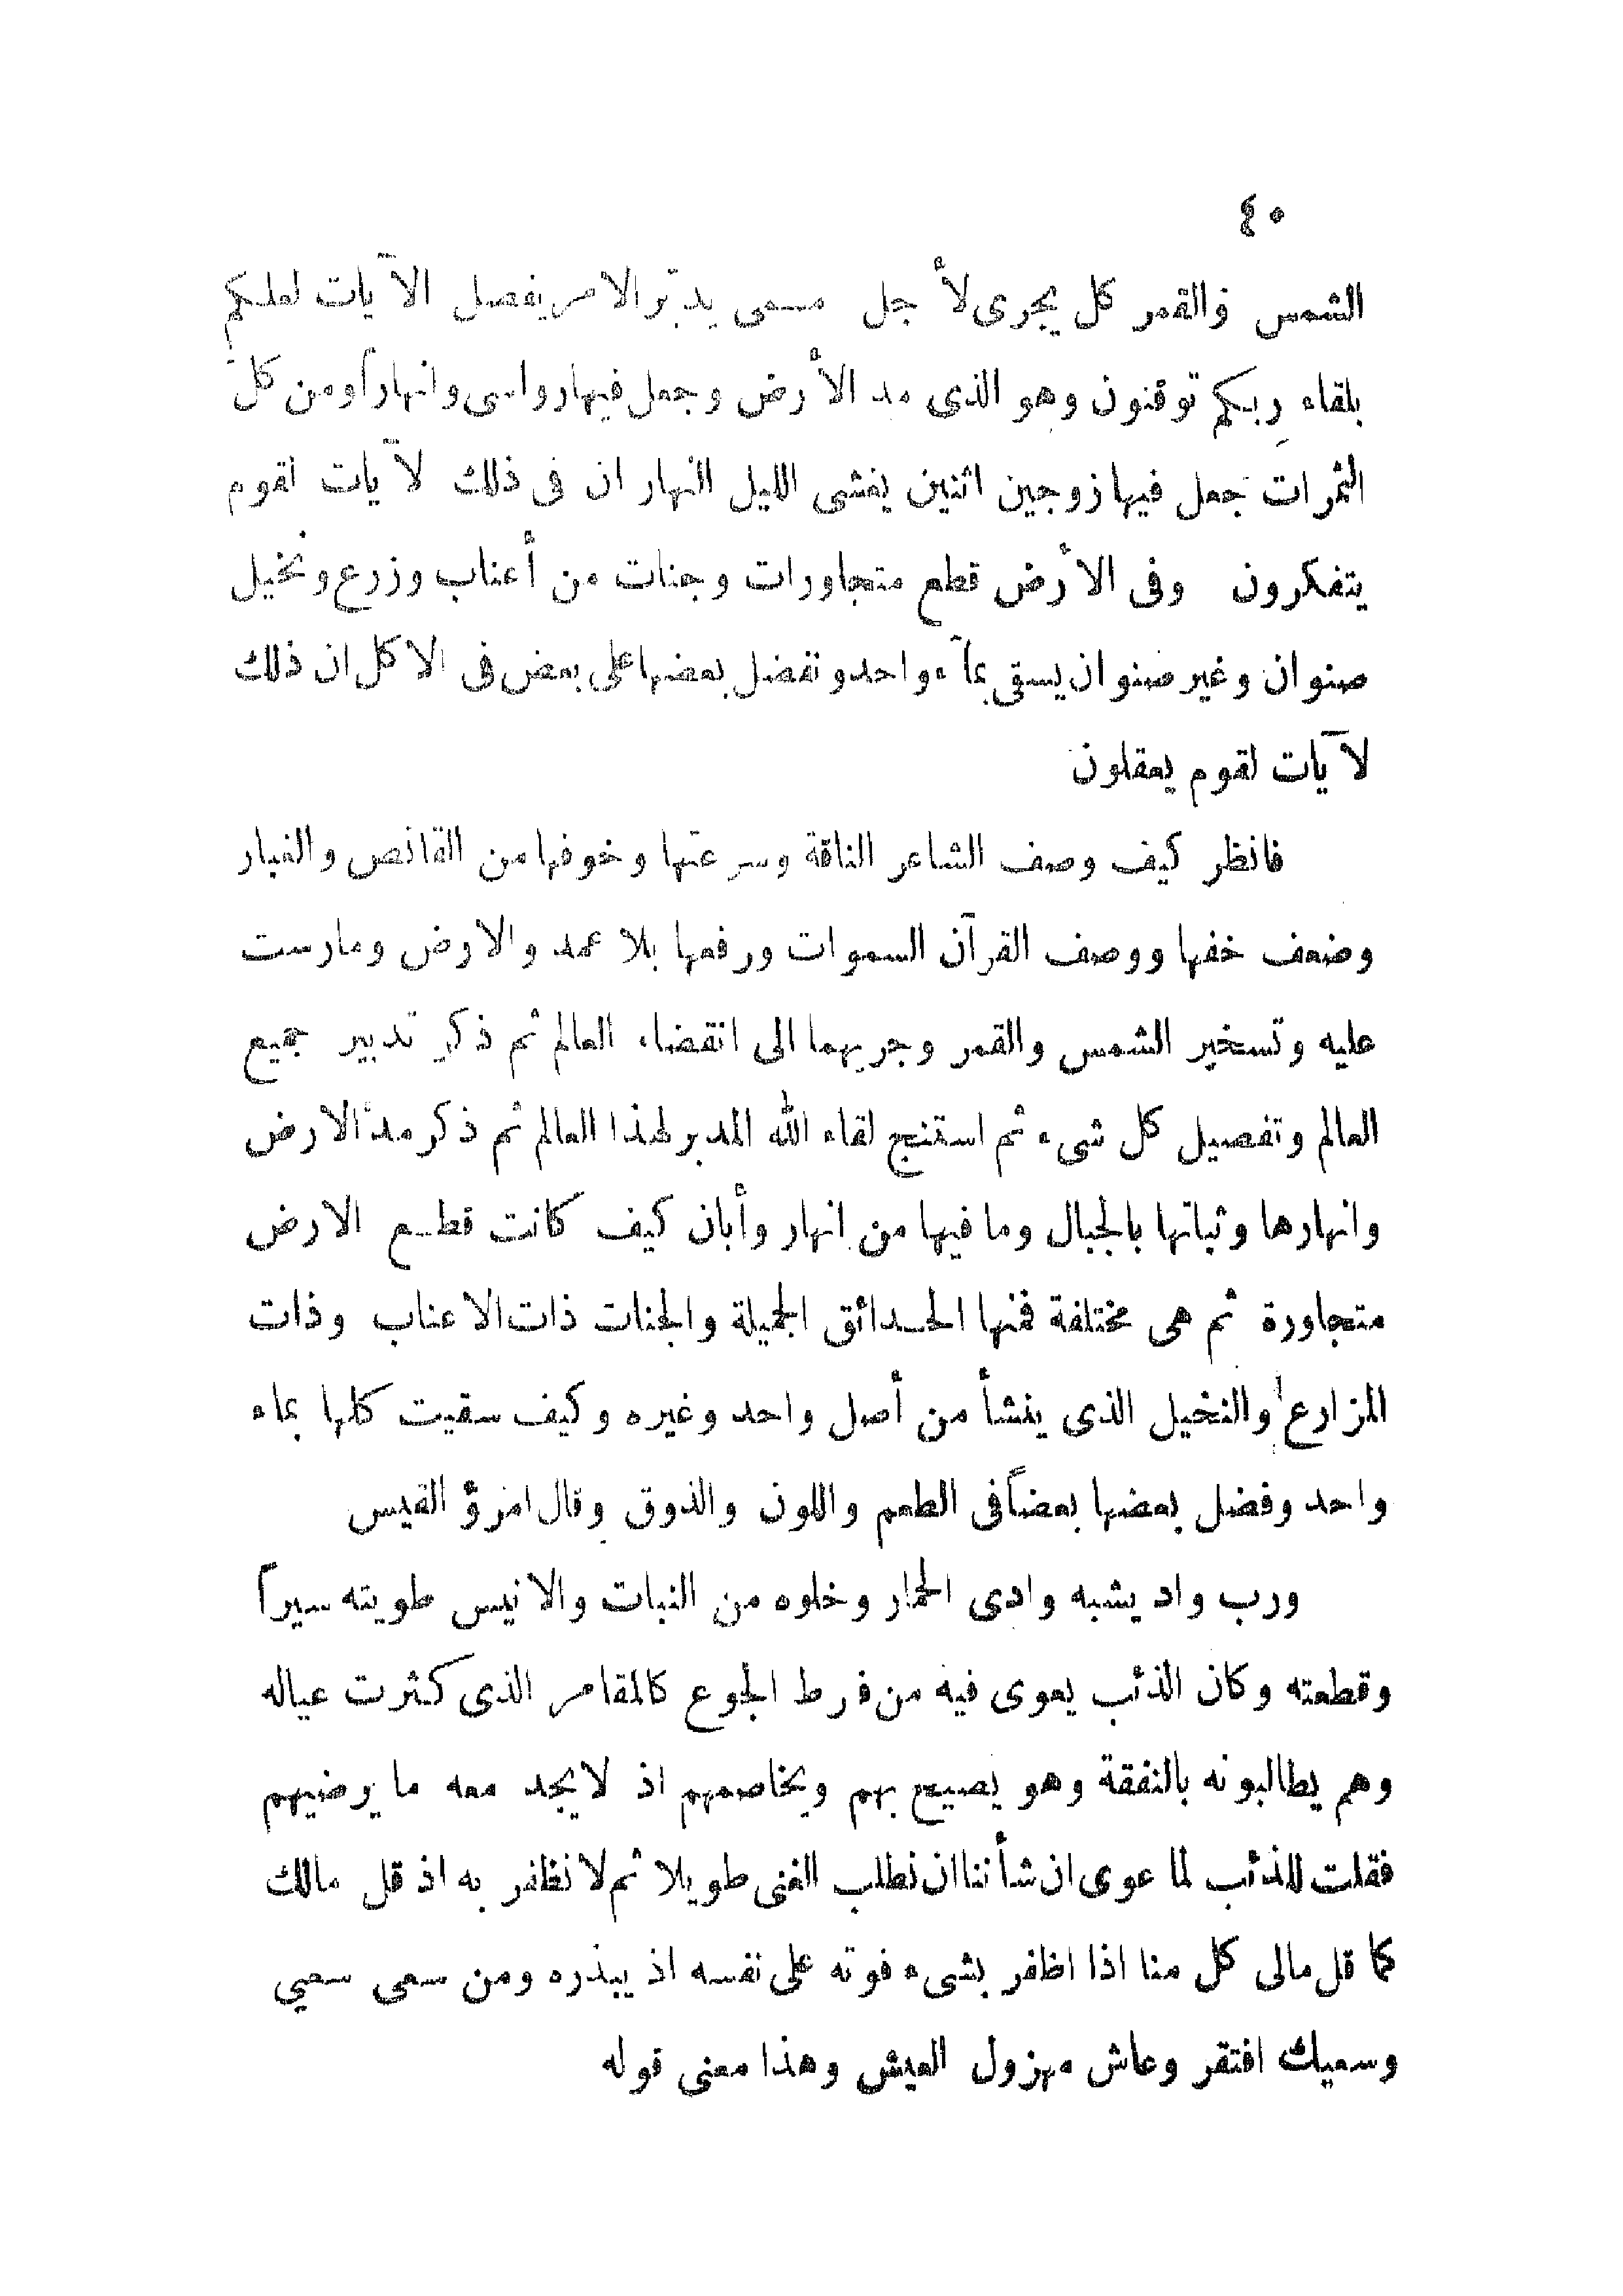 ٤٠
الشمس والقمر كل يجرى لأجل مسمى يدبّر الامر يفصل الآيات لعلكم
بلقاء ربكم توقنون وهو الذى مد الأرض وجعل فيها رواسى وانهاراً ومن كلّ
الثمرات جعل فيها زوجين اثنين يغشى الليل النهار ان فى ذلك لآيات لقوم
يتفكرون وفى الأرض قطع متجاورات وجنات من أعناب وزرع ونخيل
صنوان وغير صنوان يسقى بمآء واحد ونفضل بعضها على بعض فى الاكل ان ذلك
لآيات لقوم يعقلون
فانظر كيف وصف الشاعر الناقة وسرعتها وخوفها من القانص والغبار
وضعف خفها ووصف القرآن السموات ورفعها بلا عمد والارض ومارست
عليه وتسخير الشمس والقمر وجريهما الى انقضاء العالم ثم ذكر تدبير جميع
العالم وتفصيل كل شىء ثم استنتج لقاء الله المدبر لهذا العالم ثم ذكر مدّ الارض
وانهارها وثباتها بالجبال وما فيها من انهار وأبان كيف كانت قطع الارض
متجاورة ثم هى مختلفة فمنها الحدائق الجميلة والجنات ذات الاعناب وذات
المزارع والنخيل الذى ينشأ من أصل واحد وغيره وكيف سقيت كلها بماء
واحد وفضل بعضها بعضاً فى الطعم واللون والذوق وقال امرؤ القيس
ورب واد يشبه وادى الحمار وخلوه من النبات والانيس طويته سيراً
وقطعته وكان الذئب يعوى فيه من فرط الجوع كالمقامر الذى كثرت عياله
وهم يطالبونه بالنفقة وهو يصيح بهم ويخاصمهم اذ لا يجد معه ما يرضيهم
فقلت للذئب لما عوى ان شأننا ان نطلب الغنى طويلا ثم لا نظفر به اذ قل مالك
كما قل مالى كل منا اذا اظفر بشىء فوته على نفسه اذ يبذره ومن سعى سعيي
وسعيك افتقر وعاش مهزول العيش وهذا معنى قوله